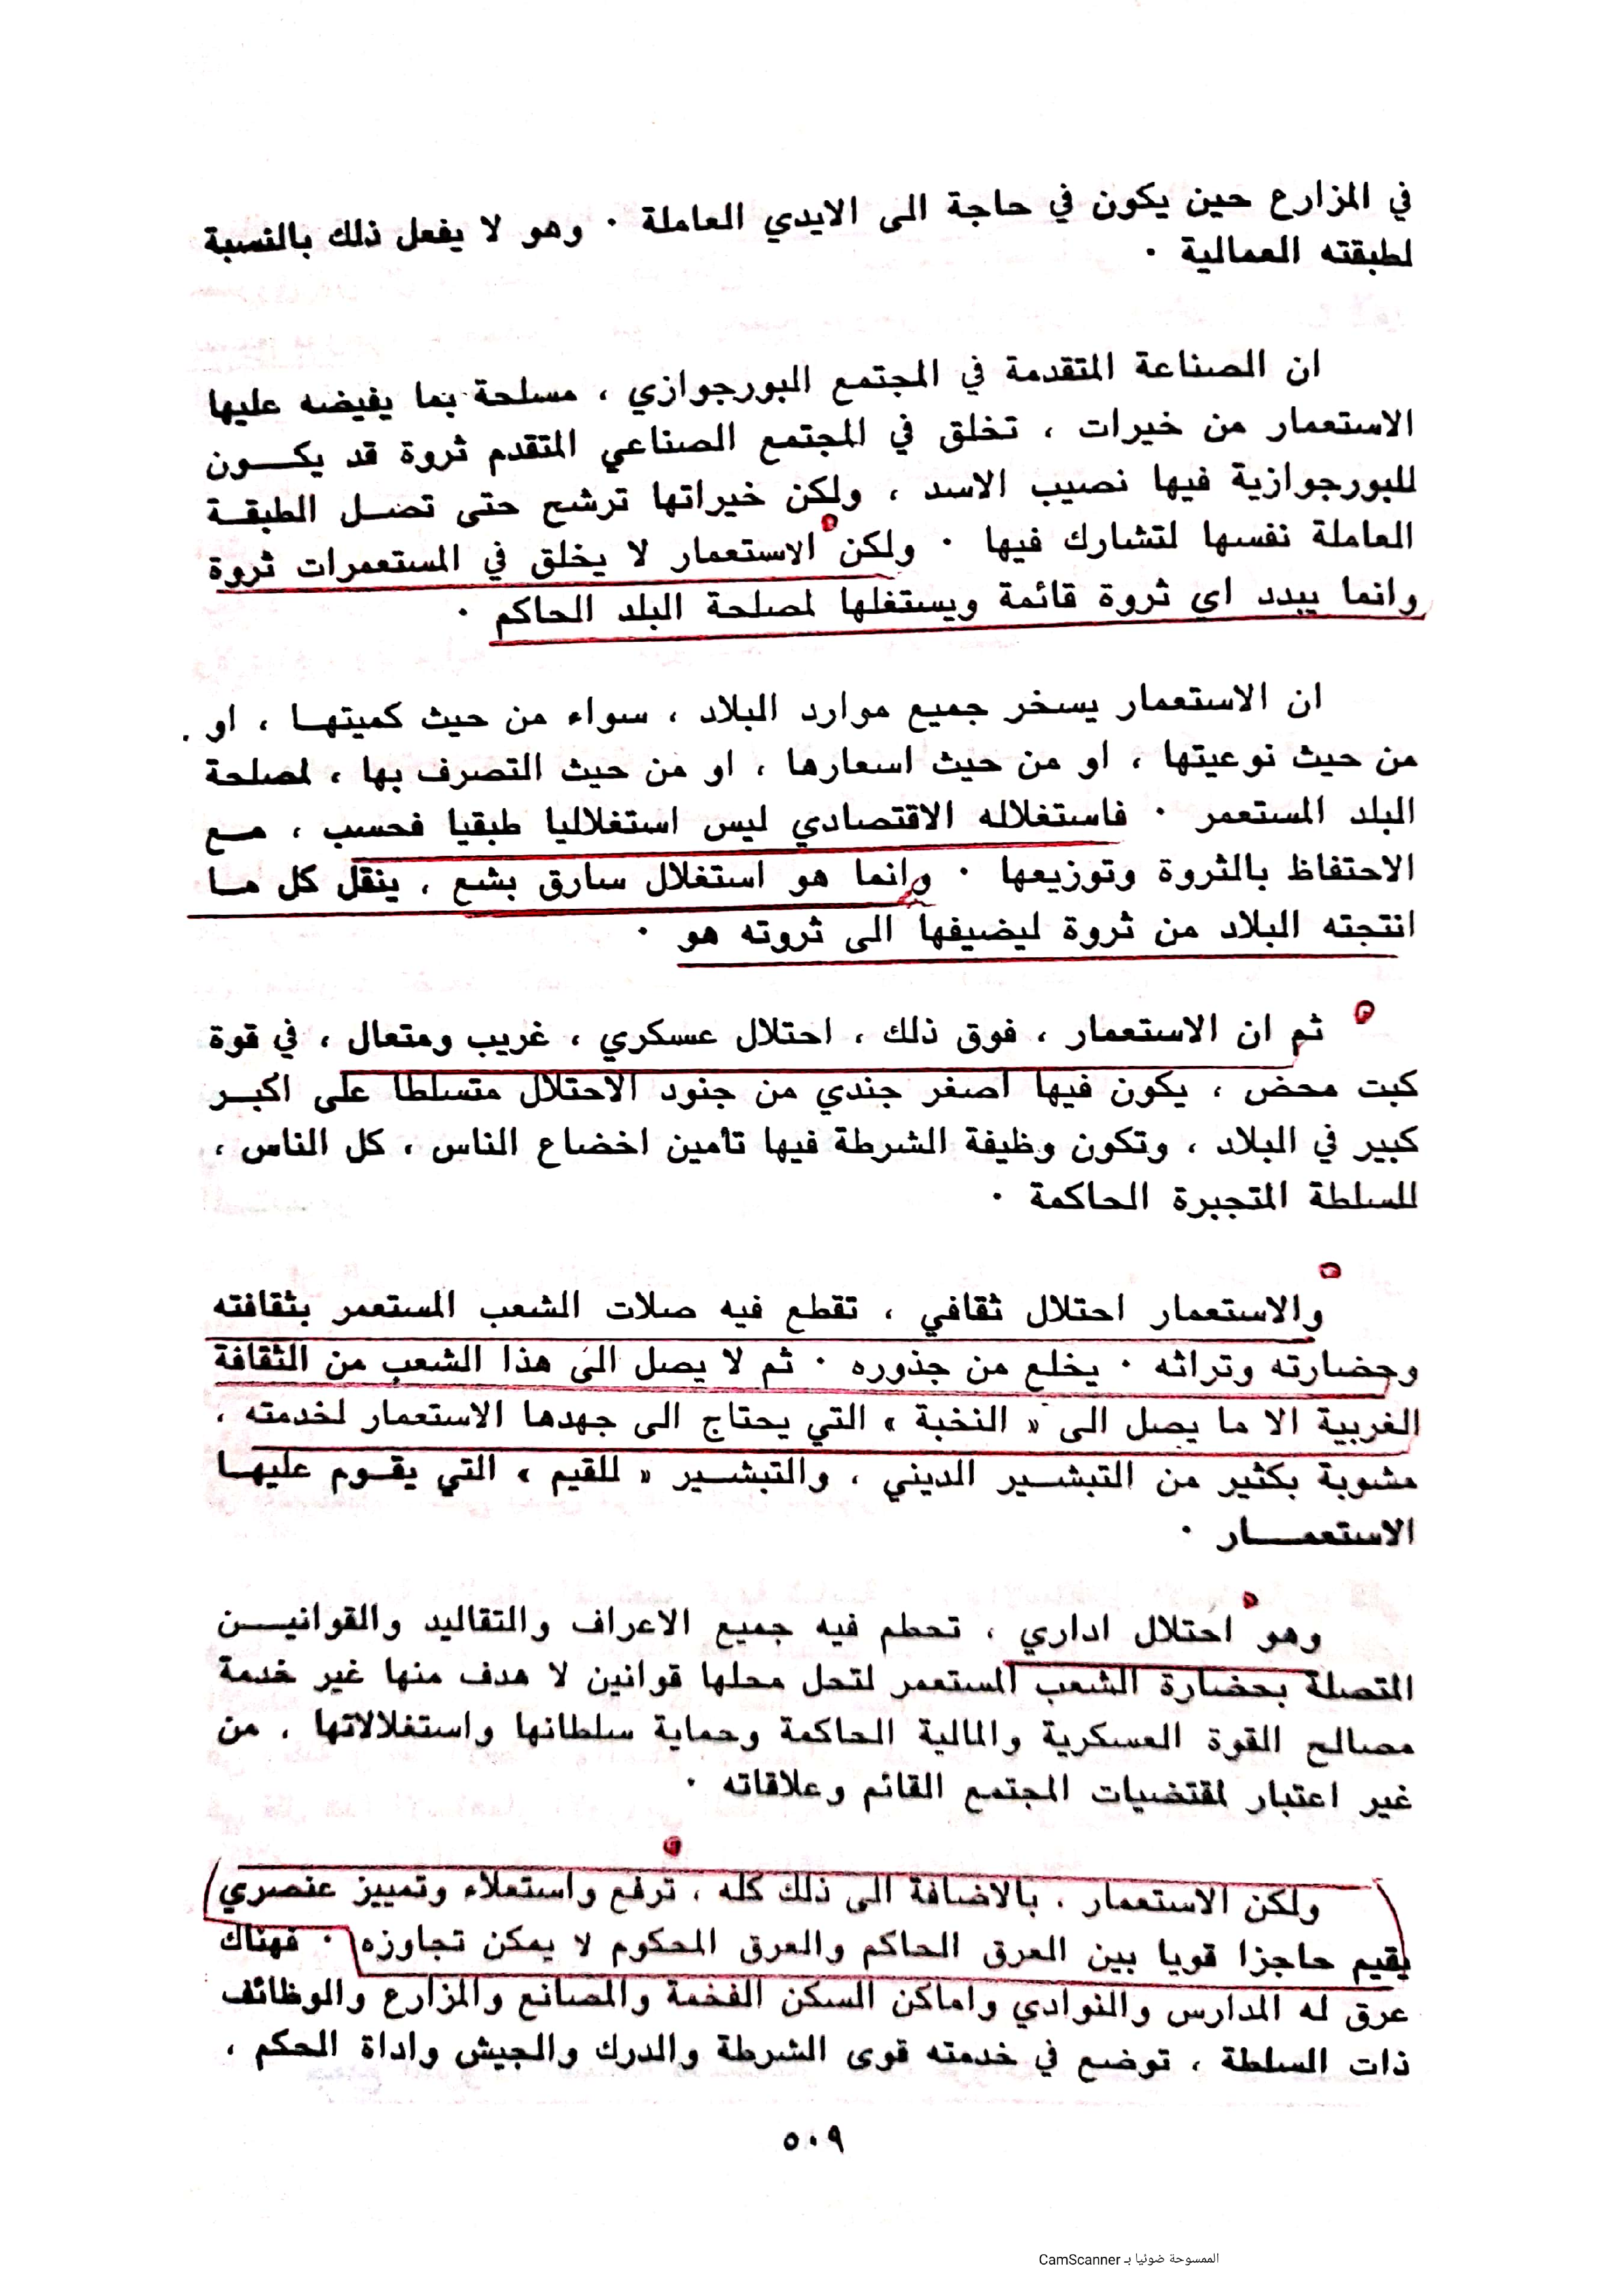 في المزارع حين يكون في حاجة الى الايدي العاملة . وهو لا يفعل ذلك بالنسبة
لطبقته العمالية .
ان الصناعة المتقدمة في المجتمع البورجوازي ، مسلحة بما يفيضه عليها
الاستعمار من خيرات ، تخلق في المجتمع الصناعي المتقدم ثروة قد يكـــون
للبورجوازية فيها نصيب الاسد ، ولكن خيراتها ترشح حتى تصـل الطبقـة
العاملة نفسها لتشارك فيها . ولكن الاستعمار لا يخلق في المستعمرات ثروة
وانما يبدد اي ثروة قائمة ويستغلها لمصلحة البلد الحاكم .
ان الاستعمار يسخر جميع موارد البلاد ، سواء من حيث كميتهـا ، او
من حيث نوعيتها ، او من حيث اسعارها ، او من حيث التصرف بها ، لمصلحة
البلد المستعمر . فاستغلاله الاقتصادي ليس استغلاليا طبقيا فحسب ، مـع
الاحتفاظ بالثروة وتوزيعها . وانما هو استغلال سارق بشع ، ينقل كل مـا
انتجته البلاد من ثروة ليضيفها الى ثروته هو .
ثم ان الاستعمار ، فوق ذلك ، احتلال عسكري ، غريب ومتعال ، في قوة
كبت محض ، يكون فيها اصغر جندي من جنود الاحتلال متسلطا على اكبـر
كبير في البلاد ، وتكون وظيفة الشرطة فيها تأمين اخضاع الناس ، كل الناس ،
للسلطة المتجبرة الحاكمة .
والاستعمار احتلال ثقافي ، تقطع فيه صلات الشعب المستعمر بثقافته
وحضارته وتراثه . يخلع من جذوره . ثم لا يصل الى هذا الشعب من الثقافة
الغربية الا ما يصل الى « النخبة » التي يحتاج الى جهدها الاستعمار لخدمته ،
مشوبة بكثير من التبشـير الديني ، والتبشـير « للقيم » التي يقـوم عليهـا
الاستعمـــار .
وهو احتلال اداري ، تحطم فيه جميع الاعراف والتقاليد والقوانيـــن
المتصلة بحضارة الشعب المستعمر لتحل محلها قوانين لا هدف منها غير خدمة
مصالح القوة العسكرية والمالية الحاكمة وحماية سلطانها واستغلالاتها ، من
غير اعتبار لمقتضيات المجتمع القائم وعلاقاته .
ولكن الاستعمار ، بالاضافة الى ذلك كله ، ترفع واستعلاء وتمييز عنصري
يقيم حاجزا قويا بين العرق الحاكم والعرق المحكوم لا يمكن تجاوزه . فهناك
عرق له المدارس والنوادي واماكن السكن الفخمة والمصانع والمزارع والوظائف
ذات السلطة ، توضع في خدمته قوى الشرطة والدرك والجيش واداة الحكم ،
٥٠٩
الممسوحة ضوئيا بـ CamScanner